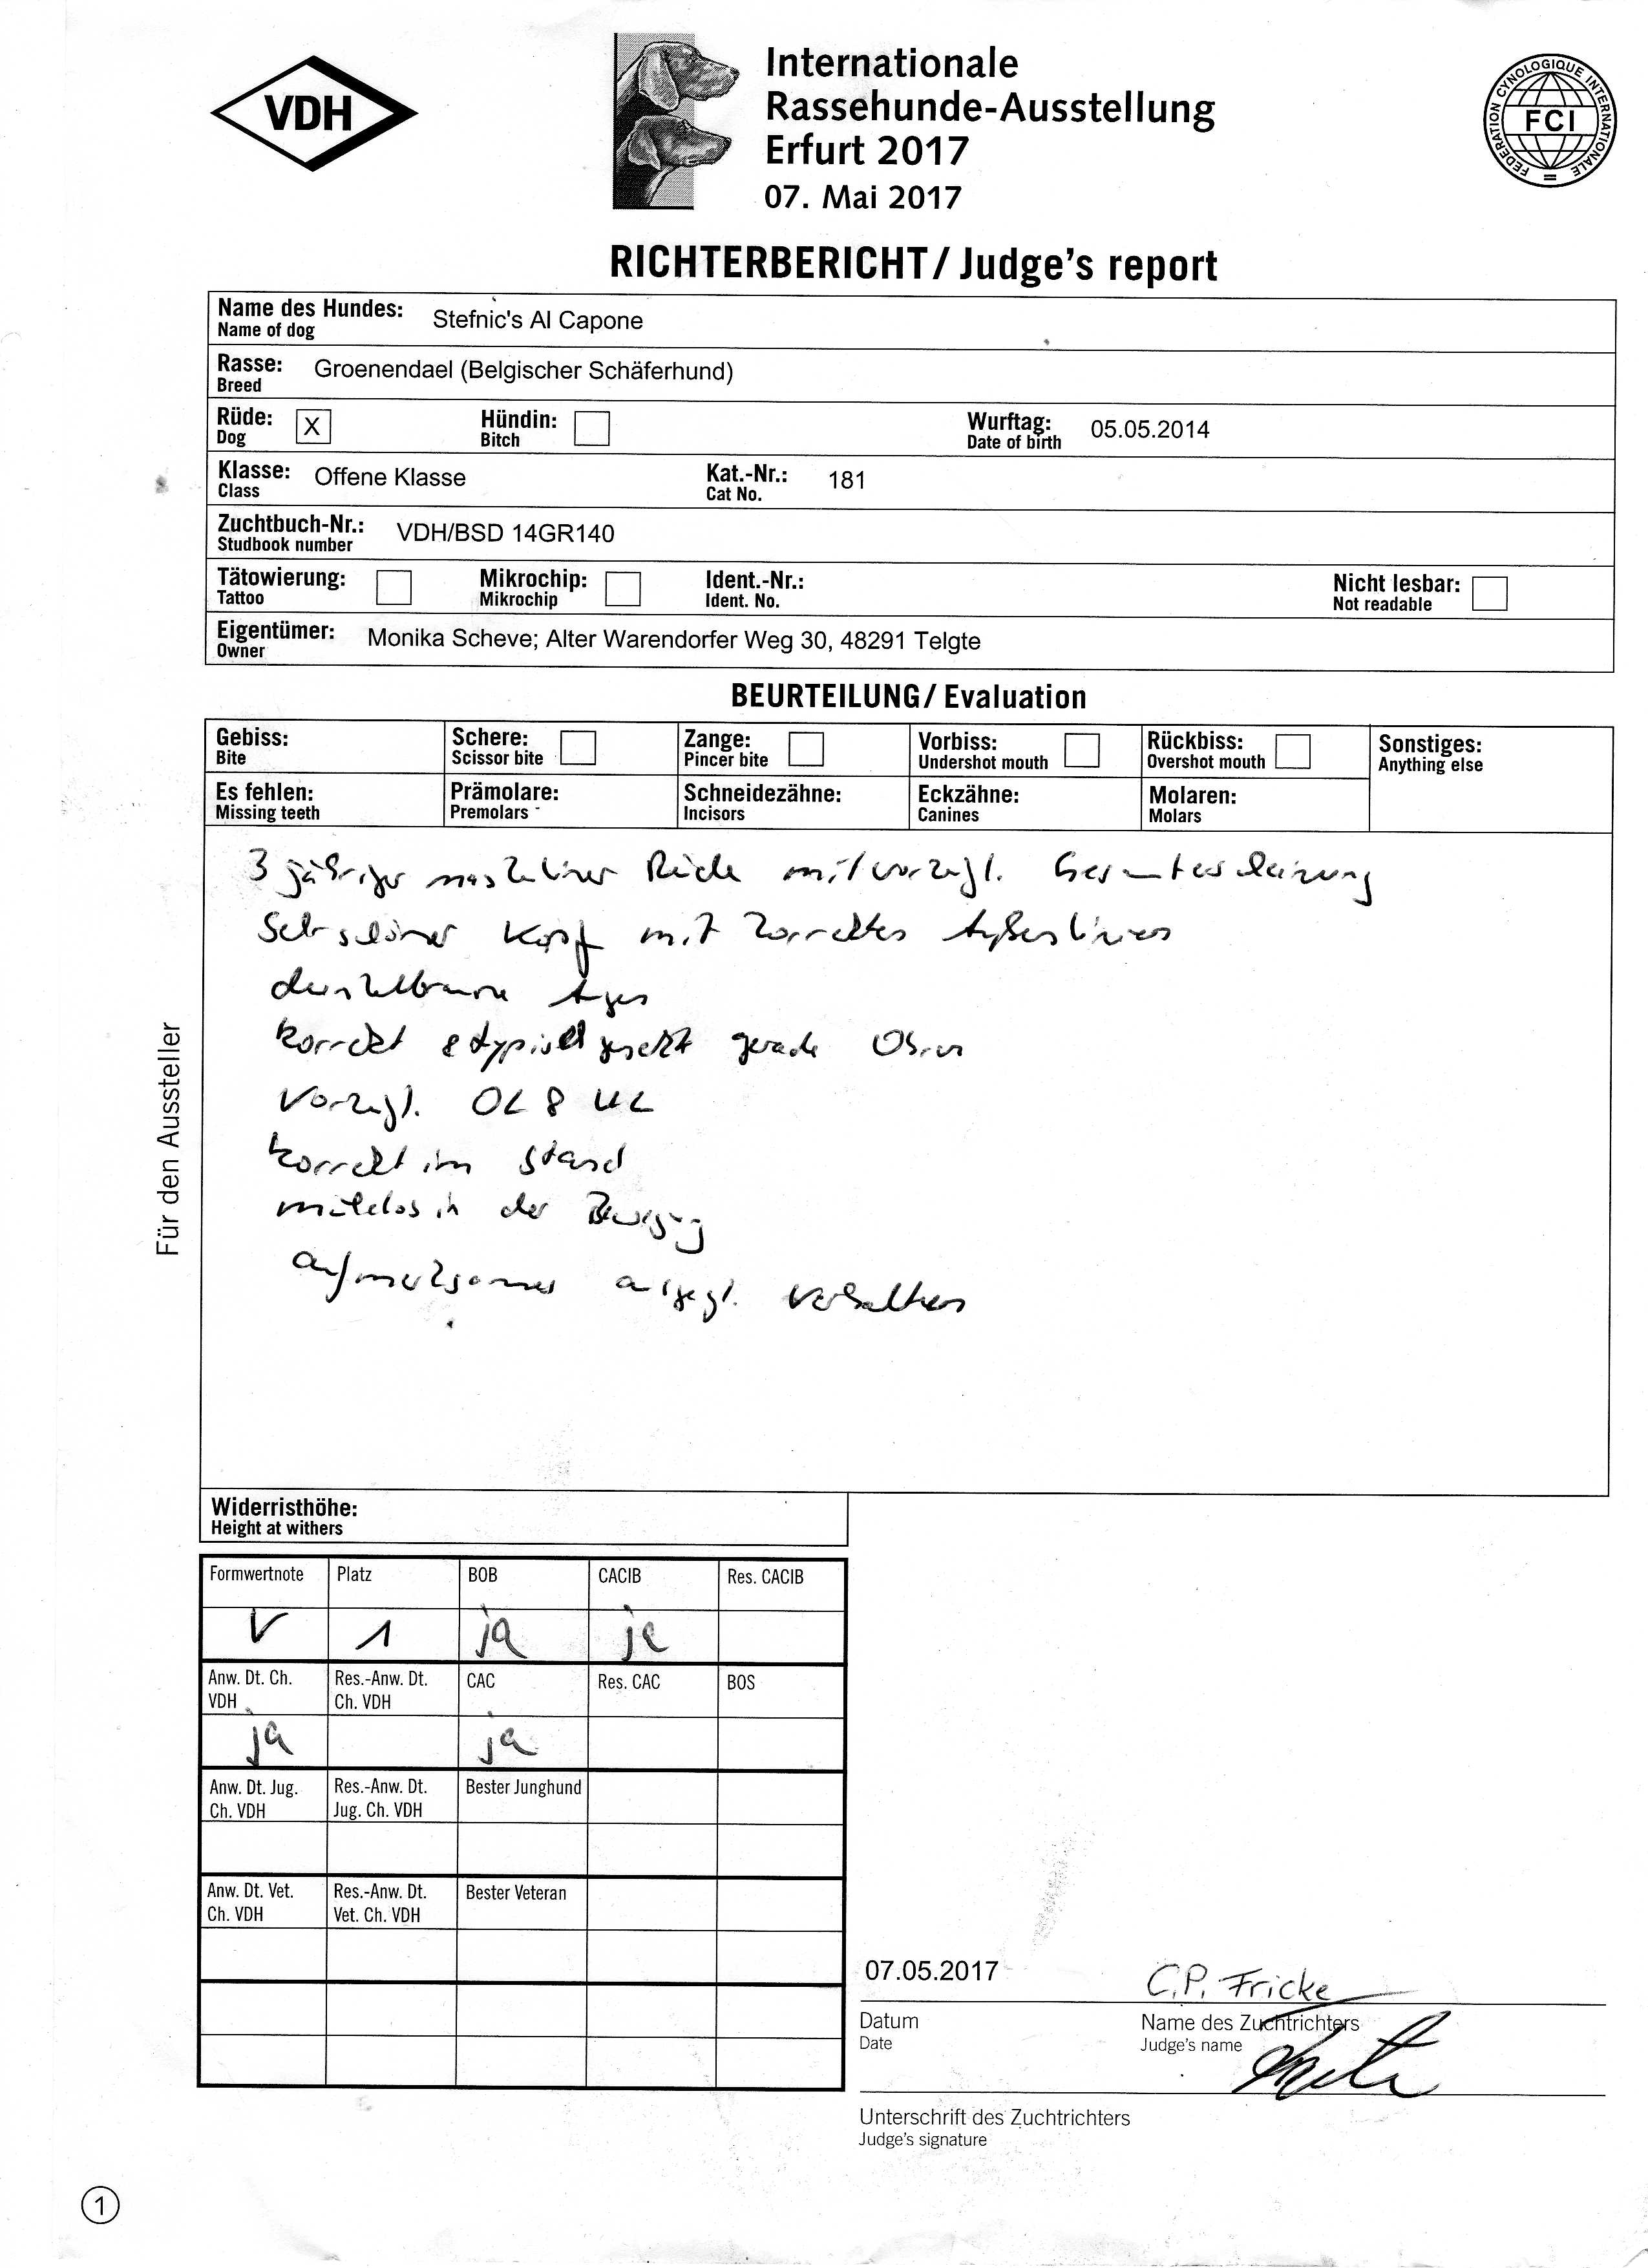 VDH
Internationale
Rassehunde-Ausstellung
Erfurt 2017
07. Mai 2017
FEDERATION CYNOLOGIQUE INTERNATIONALE
FCI
RICHTERBERICHT/ Judge's report
Name des Hundes: Stefnic's Al Capone
Name of dog
Rasse: Groenendael (Belgischer Schäferhund)
Breed
Rüde: X Hündin: Wurftag: 05.05.2014
Dog Bitch Date of birth
Klasse: Offene Klasse Kat.-Nr.: 181
Class Cat No.
Zuchtbuch-Nr.: VDH/BSD 14GR140
Studbook number
Tätowierung: Mikrochip: Ident.-Nr.: Nicht lesbar:
Tattoo Mikrochip Ident. No. Not readable
Eigentümer: Monika Scheve; Alter Warendorfer Weg 30, 48291 Telgte
Owner
BEURTEILUNG/ Evaluation
Gebiss: Schere: Zange: Vorbiss: Rückbiss: Sonstiges:
Bite Scissor bite Pincer bite Undershot mouth Overshot mouth Anything else
Es fehlen: Prämolare: Schneidezähne: Eckzähne: Molaren:
Missing teeth Premolars Incisors Canines Molars
3 jähriger maskuliner Rüde mit vorzügl. Gesamterscheinung
Sehr schöner Kopf mit korrekten Außenlinien
dunkelbraune Augen
korrekt & typisch gesetzt gerade Ohren
Vorzügl. OL & UL
korrekt im Stand
mühelos in der Bewegung
aufmerksames Verhalten
Für den Aussteller
Widerristhöhe:
Height at withers
Formwertnote Platz BOB CACIB Res. CACIB
V 1 ja ja
Anw. Dt. Ch. VDH Res.-Anw. Dt. Ch. VDH CAC Res. CAC BOS
ja ja
Anw. Dt. Jug. Ch. VDH Res.-Anw. Dt. Jug. Ch. VDH Bester Junghund
Anw. Dt. Vet. Ch. VDH Res.-Anw. Dt. Vet. Ch. VDH Bester Veteran
07.05.2017 C.P. Fricke
Datum Name des Zuchtrichters
Date Judge's name
Unterschrift des Zuchtrichters
Judge's signature
1